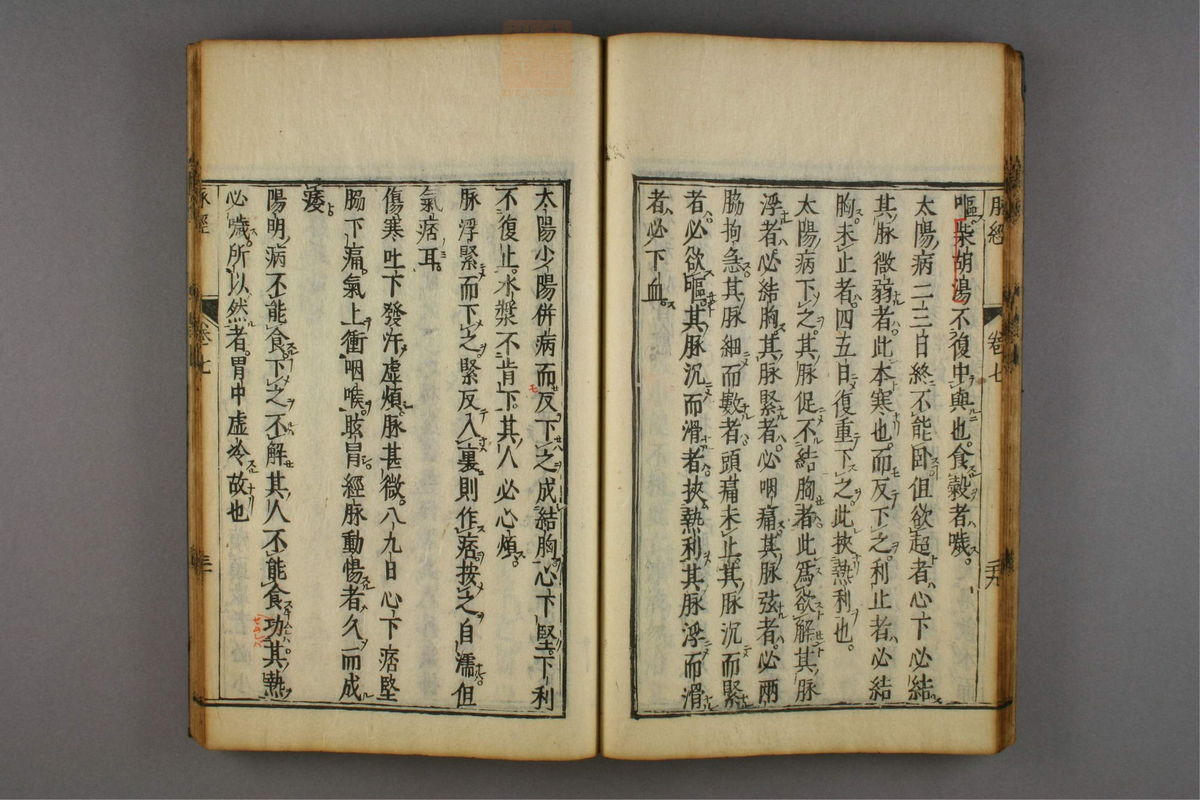 脉經 卷七 三十九
嘔柴胡湯不復中與也。食穀者噦。
太陽病二三日終不能臥但欲起者心下必結
其脉微弱者此本寒也而反下之利止者必結
胸未止者四五日復重下之此挾熱利也。
太陽病下之其脉促不結胸者此爲欲解其脉
浮者必結胸其脉緊者必咽痛其脉弦者必兩
脇拘急其脉細而數者頭痛未止其脉沉而緊
者必欲嘔其脉沉而滑者挾熱利其脉浮而滑
者必下血
太陽少陽併病而反下之成結胸心下堅下利
不復止水漿不肯下其人必心煩。
脉浮緊而下之緊反入裏則作痞按之自濡但
氣痞耳
傷寒吐下發汗虛煩脉甚微八九日心下痞堅
脇下痛氣上衝咽喉眩冒經脉動惕者久而成
痿
陽明病不能食下之不解其人不能食功其熱
必噦所以然者胃中虛冷故也
脉經 卷七